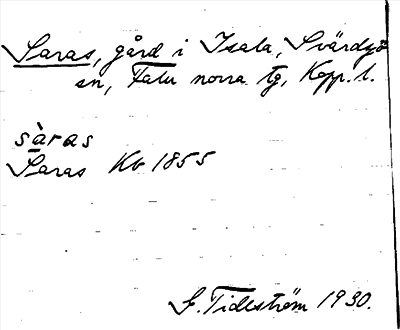 Saras, gård i Isala, Svärdsjö
sn, Falu norra tg, Kopp. l.
sàras
Saras Kb 1855
G. Tideström 1930.